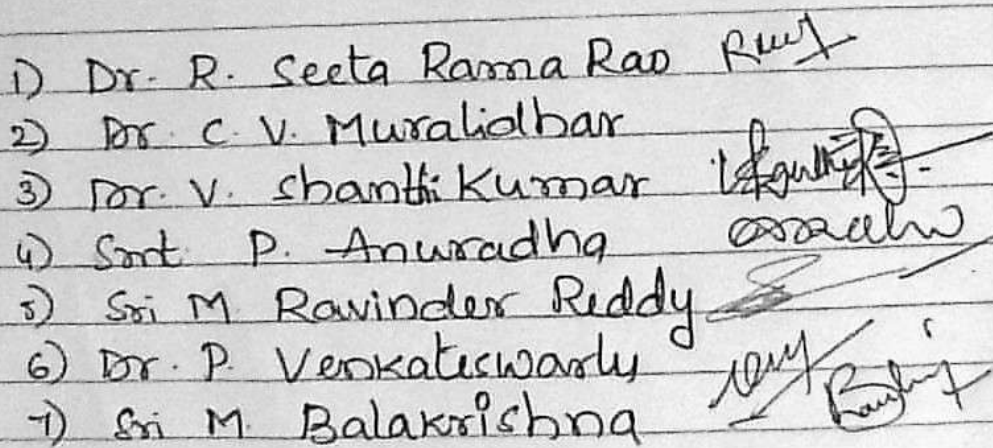 1) Dr. R. Seeta Rama Rao
2) Dr. C. V. Muralidhar
3) Dr. V. Shanthi Kumar
4) Smt. P. Anuradha
5) Sri M Ravinder Reddy
6) Dr. P. Venkateswarlu
7) Sri M. Balakrishna